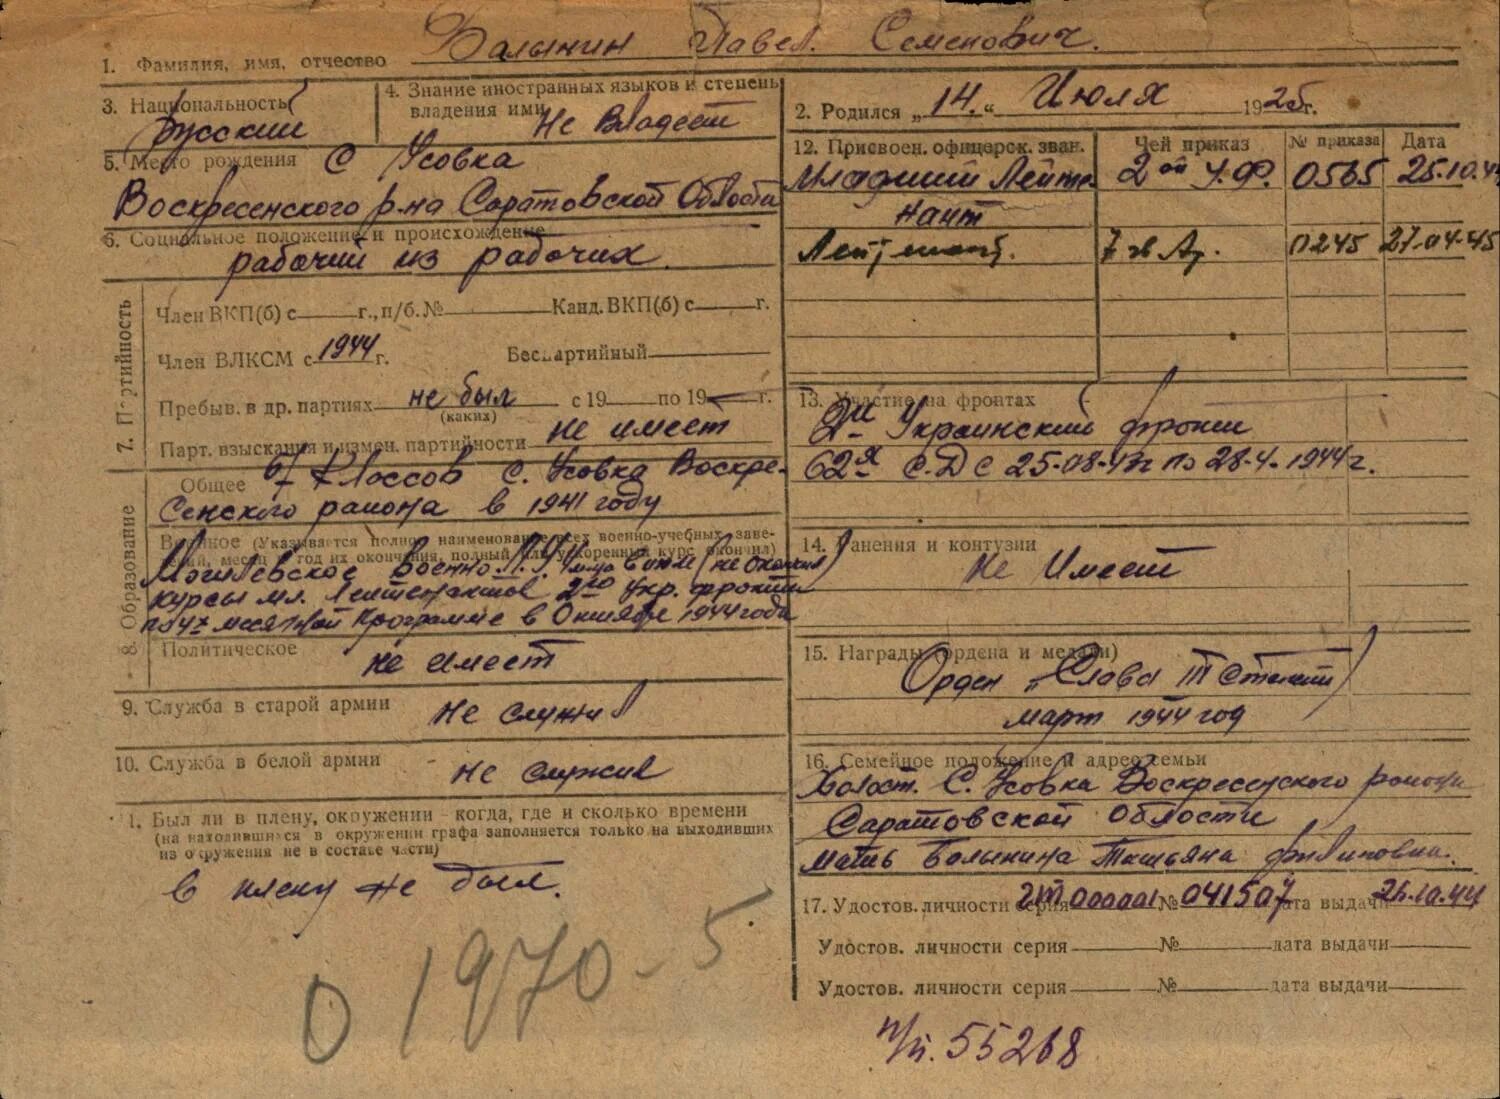 1. Фамилия, имя, отчество Балынин Павел Семенович.
3. Национальность Русский
4. Знание иностранных языков и степень владения ими Не Владеет
2. Родился „14." Июля 1925г.
5. Место рождения с Усовка
Воскресенского р-на Саратовской Области
6. Социальное положение и происхождение
рабочий из рабочих.
7. Партийность
Член ВКП(б) с г., п/б. № Канд. ВКП(б) с г.
Член ВЛКСМ с 1944 г. Беспартийный
Пребыв. в др. партиях не был с 19 по 19 г.
(каких)
Парт. взыскания и измен. партийности не имеет
8. Образование
Общее 6/7 Классов с. Усовка Воскре-
сенского района в 1941 году
Военное (Указывается полное наименование всех военно-учебных заве-
дений, месяц и год их окончания, полный или ускоренный курс окончил)
Могилевское Военно (не окончил)
курсы мл. Лейтенантов 2го Укр. фронта
по 4х месячной Программе в Октябре 1944 года
Политическое не имеет
9. Служба в старой армии не служил
10. Служба в белой армии не служил
1. Был ли в плену, окружении - когда, где и сколько времени
(на находившихся в окружении графа заполняется только на выходивших
из окружения не в составе части)
в плену не был.
0 1970-5
12. Присвоен. офицерск. зван. Чей приказ № приказа Дата
Младший Лейте- 2ой У.Ф. 0565 25.10.44
нант
Лейтенант. 7 гв Ар. 0245 27.04.45
13. Участие на фронтах
2й Украинский фронт
62я с.Д с 25-08-43г по 28-4.1944г.
14. Ранения и контузии
Не Имеет
15. Награды (ордена и медали)
Орден „Слава III Степени
март 1944 год
16. Семейное положение и адрес семьи
Холост. С. Усовка Воскресенского района
Саратовской Области
мать Балынина Татьяна Филиповна.
17. Удостов. личности серия 000001 № 041507 дата выдачи 26.10.44
Удостов. личности серия № дата выдачи
Удостов. личности серия № дата выдачи
п/п. 55268